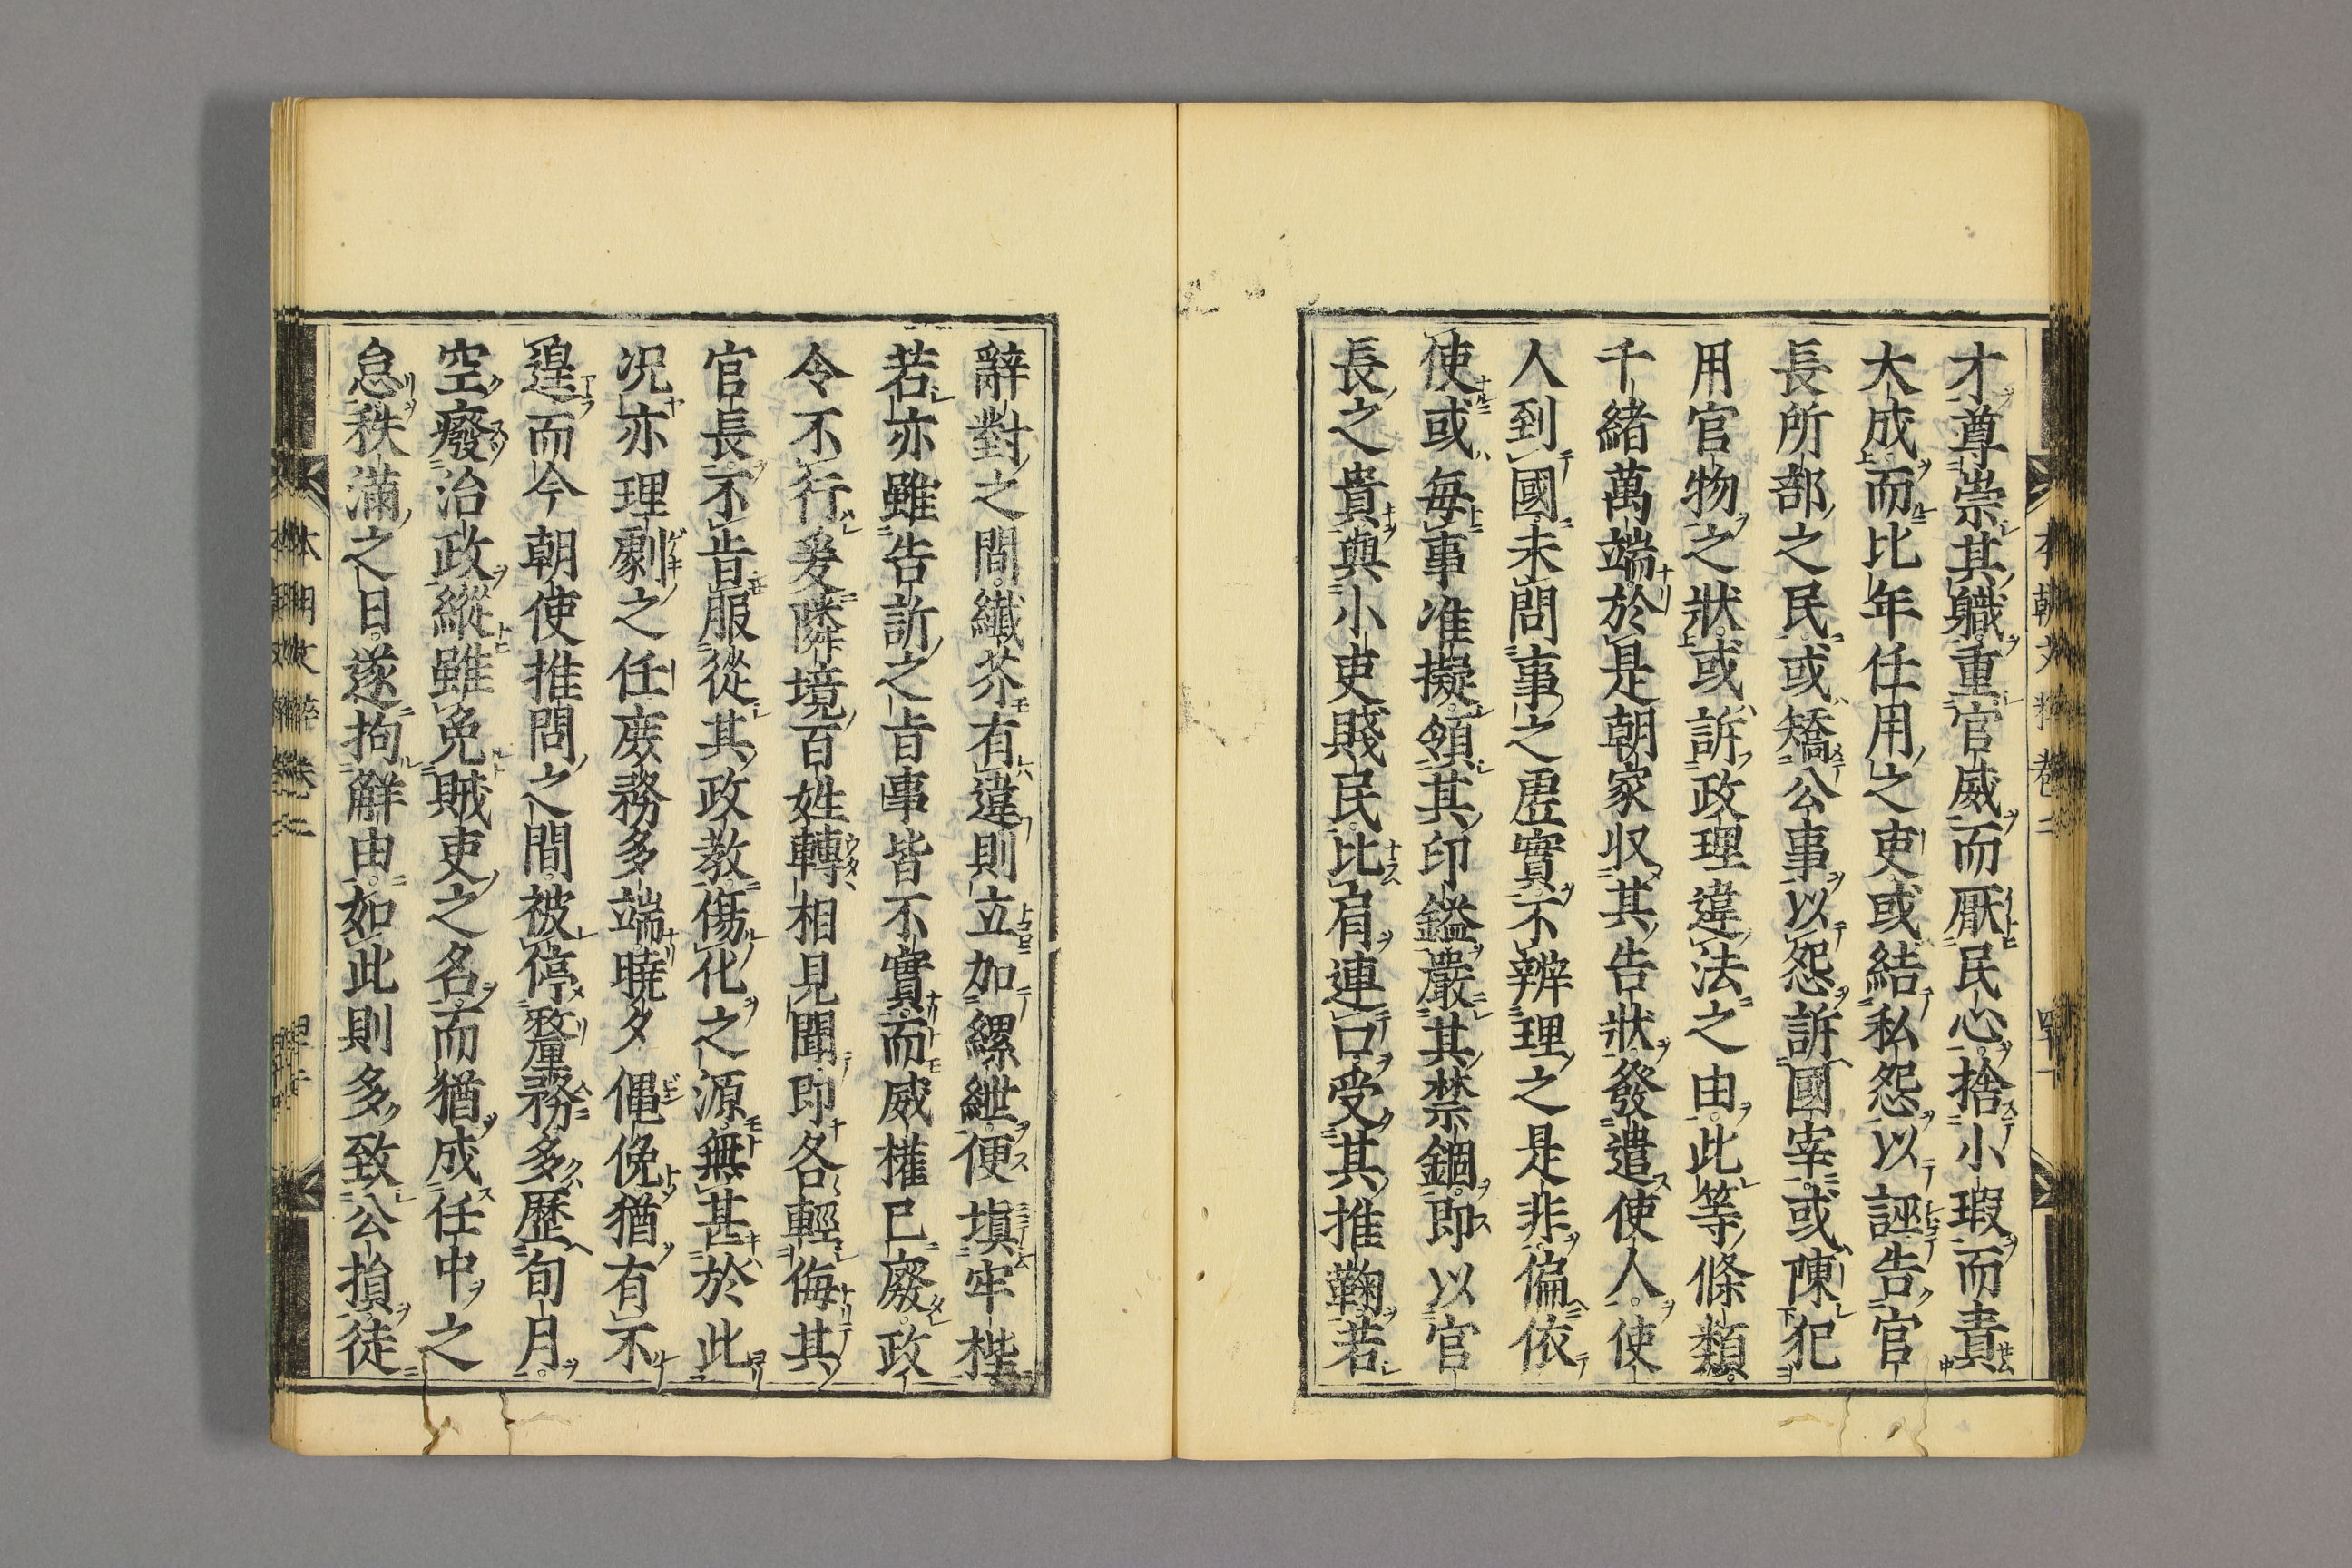 才尊崇其職重官威而厭民心捨小瑕而責
大成而比年任用之吏或結私怨以誣告官
長所部之民或矯公事以怨訴國宰或陳犯
用官物之狀或訴政理違法之由此等條類
千緒萬端於是朝家収其告狀發遣使人使
人到國未問事之虛實不辨理之是非偏依
使或每事准擬領其印鎰嚴其禁錮即以官
長之貴與小吏賤民比肩連口受其推鞠若
辭對之間纖芥有違則立加縲紲便塡牢狴
若亦雖告訴之旨事皆不實而威權已廢政
令不行爰隣境百姓轉相見聞即各輕侮其
官長不肯服從其政教傷化之源無甚於此
况亦理劇之任庶務多端曉夕僶俛猶有不
遑而今朝使推問之間被停釐務多歷旬月
空癈治政縱雖免賊吏之名而猶成任中之
怠秩滿之日遂拘觧由如此則多致公損徒